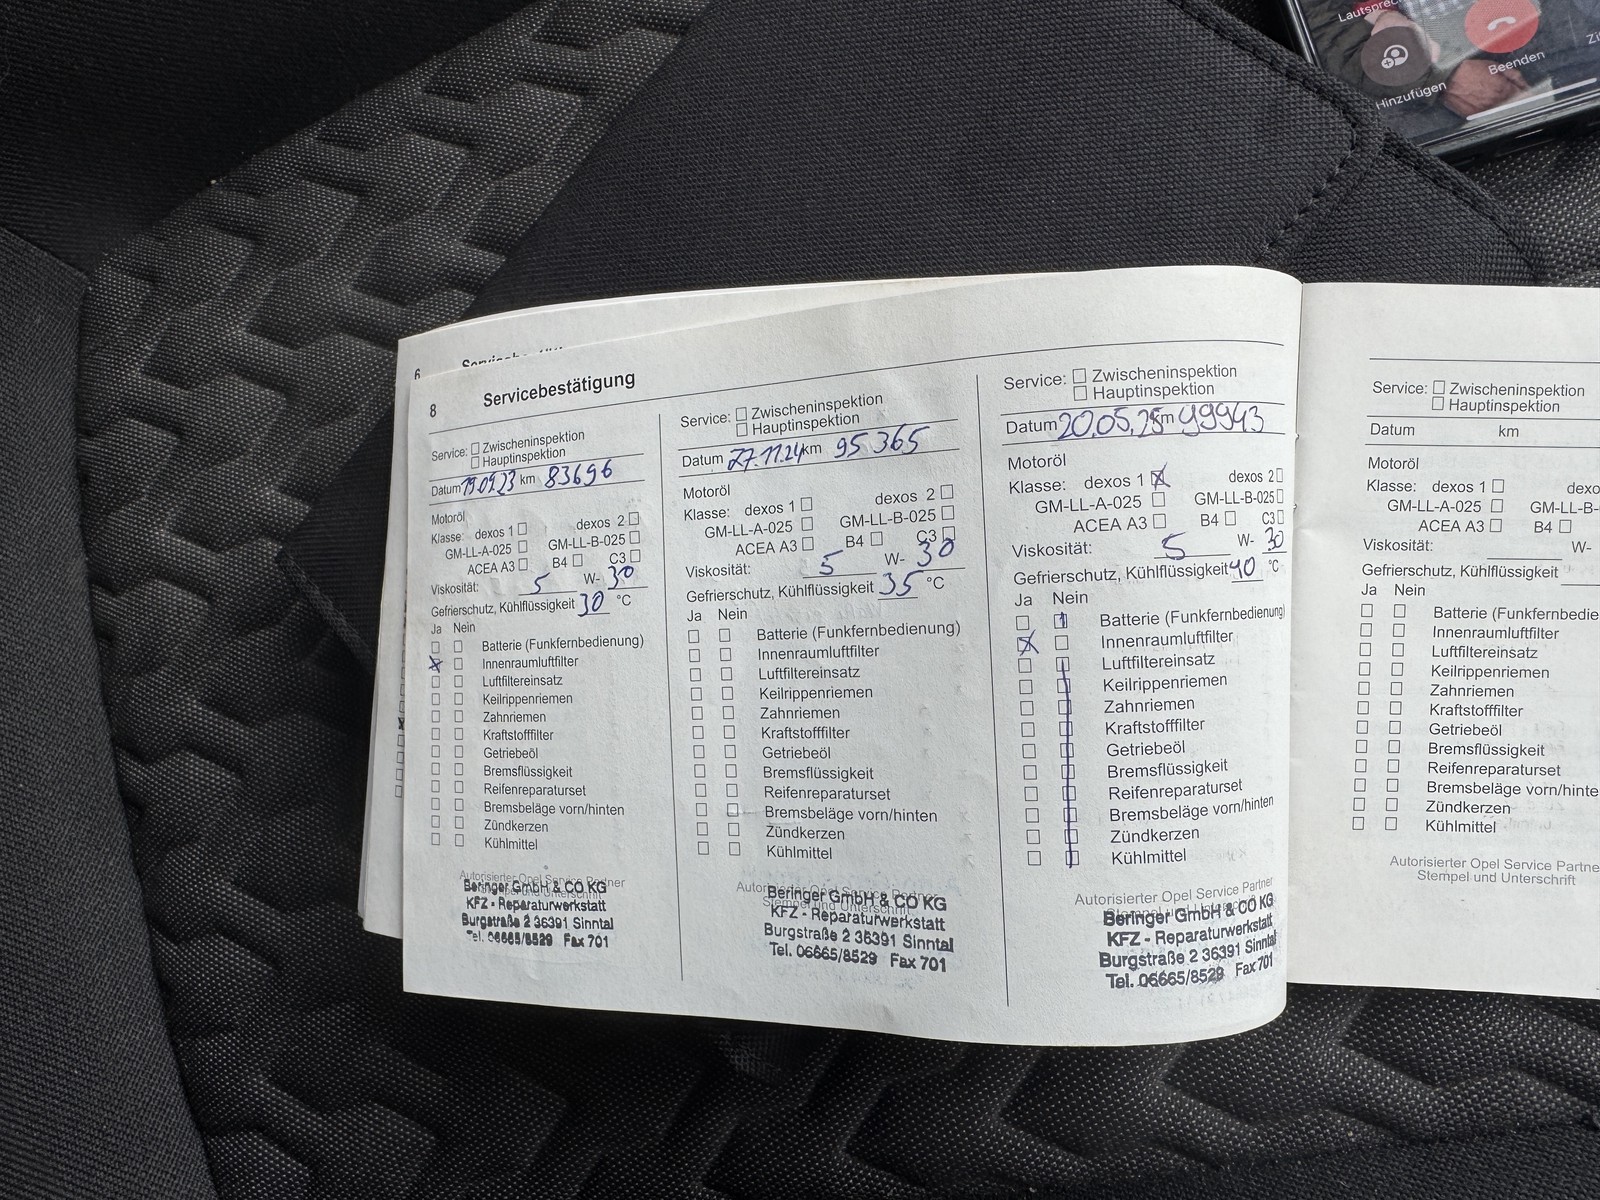 Lautsprec
Hinzufügen
Beenden
6
8 Servicebestätigung
Service: Zwischeninspektion
Hauptinspektion
Datum km 83696
Motoröl
Klasse: dexos 1 dexos 2
GM-LL-A-025 GM-LL-B-025
ACEA A3 B4 C3
Viskosität: 5 W- 30
Gefrierschutz, Kühlflüssigkeit 30 °C
Ja Nein
Batterie (Funkfernbedienung)
Innenraumluftfilter
Luftfiltereinsatz
Keilrippenriemen
Zahnriemen
Kraftstofffilter
Getriebeöl
Bremsflüssigkeit
Reifenreparaturset
Bremsbeläge vorn/hinten
Zündkerzen
Kühlmittel
Autorisierter Opel Service Partner
Stempel und Unterschrift
Beringer GmbH & CO KG
KFZ - Reparaturwerkstatt
Burgstraße 2 36391 Sinntal
Tel. 06665/8529 Fax 701
Service: Zwischeninspektion
Hauptinspektion
Datum 27.11.24 km 95 365
Motoröl
Klasse: dexos 1 dexos 2
GM-LL-A-025 GM-LL-B-025
ACEA A3 B4 C3
Viskosität: 5 W- 30
Gefrierschutz, Kühlflüssigkeit 35 °C
Ja Nein
Batterie (Funkfernbedienung)
Innenraumluftfilter
Luftfiltereinsatz
Keilrippenriemen
Zahnriemen
Kraftstofffilter
Getriebeöl
Bremsflüssigkeit
Reifenreparaturset
Bremsbeläge vorn/hinten
Zündkerzen
Kühlmittel
Autorisierter Opel Service Partner
Stempel und Unterschrift
Beringer GmbH & CO KG
KFZ - Reparaturwerkstatt
Burgstraße 2 36391 Sinntal
Tel. 06665/8529 Fax 701
Service: Zwischeninspektion
Hauptinspektion
Datum 20.05.25 km 99943
Motoröl
Klasse: dexos 1 X dexos 2
GM-LL-A-025 GM-LL-B-025
ACEA A3 B4 C3
Viskosität: 5 W- 30
Gefrierschutz, Kühlflüssigkeit 40 °C
Ja Nein
Batterie (Funkfernbedienung)
Innenraumluftfilter
Luftfiltereinsatz
Keilrippenriemen
Zahnriemen
Kraftstofffilter
Getriebeöl
Bremsflüssigkeit
Reifenreparaturset
Bremsbeläge vorn/hinten
Zündkerzen
Kühlmittel
Autorisierter Opel Service Partner
Beringer GmbH & CO KG
KFZ - Reparaturwerkstatt
Burgstraße 2 36391 Sinntal
Tel. 06665/8529 Fax 701
Service: Zwischeninspektion
Hauptinspektion
Datum km
Motoröl
Klasse: dexos 1 dexo
GM-LL-A-025 GM-LL-B-
ACEA A3 B4
Viskosität: W-
Gefrierschutz, Kühlflüssigkeit
Ja Nein
Batterie (Funkfernbedie
Innenraumluftfilter
Luftfiltereinsatz
Keilrippenriemen
Zahnriemen
Kraftstofffilter
Getriebeöl
Bremsflüssigkeit
Reifenreparaturset
Bremsbeläge vorn/hinte
Zündkerzen
Kühlmittel
Autorisierter Opel Service Partne
Stempel und Unterschrift